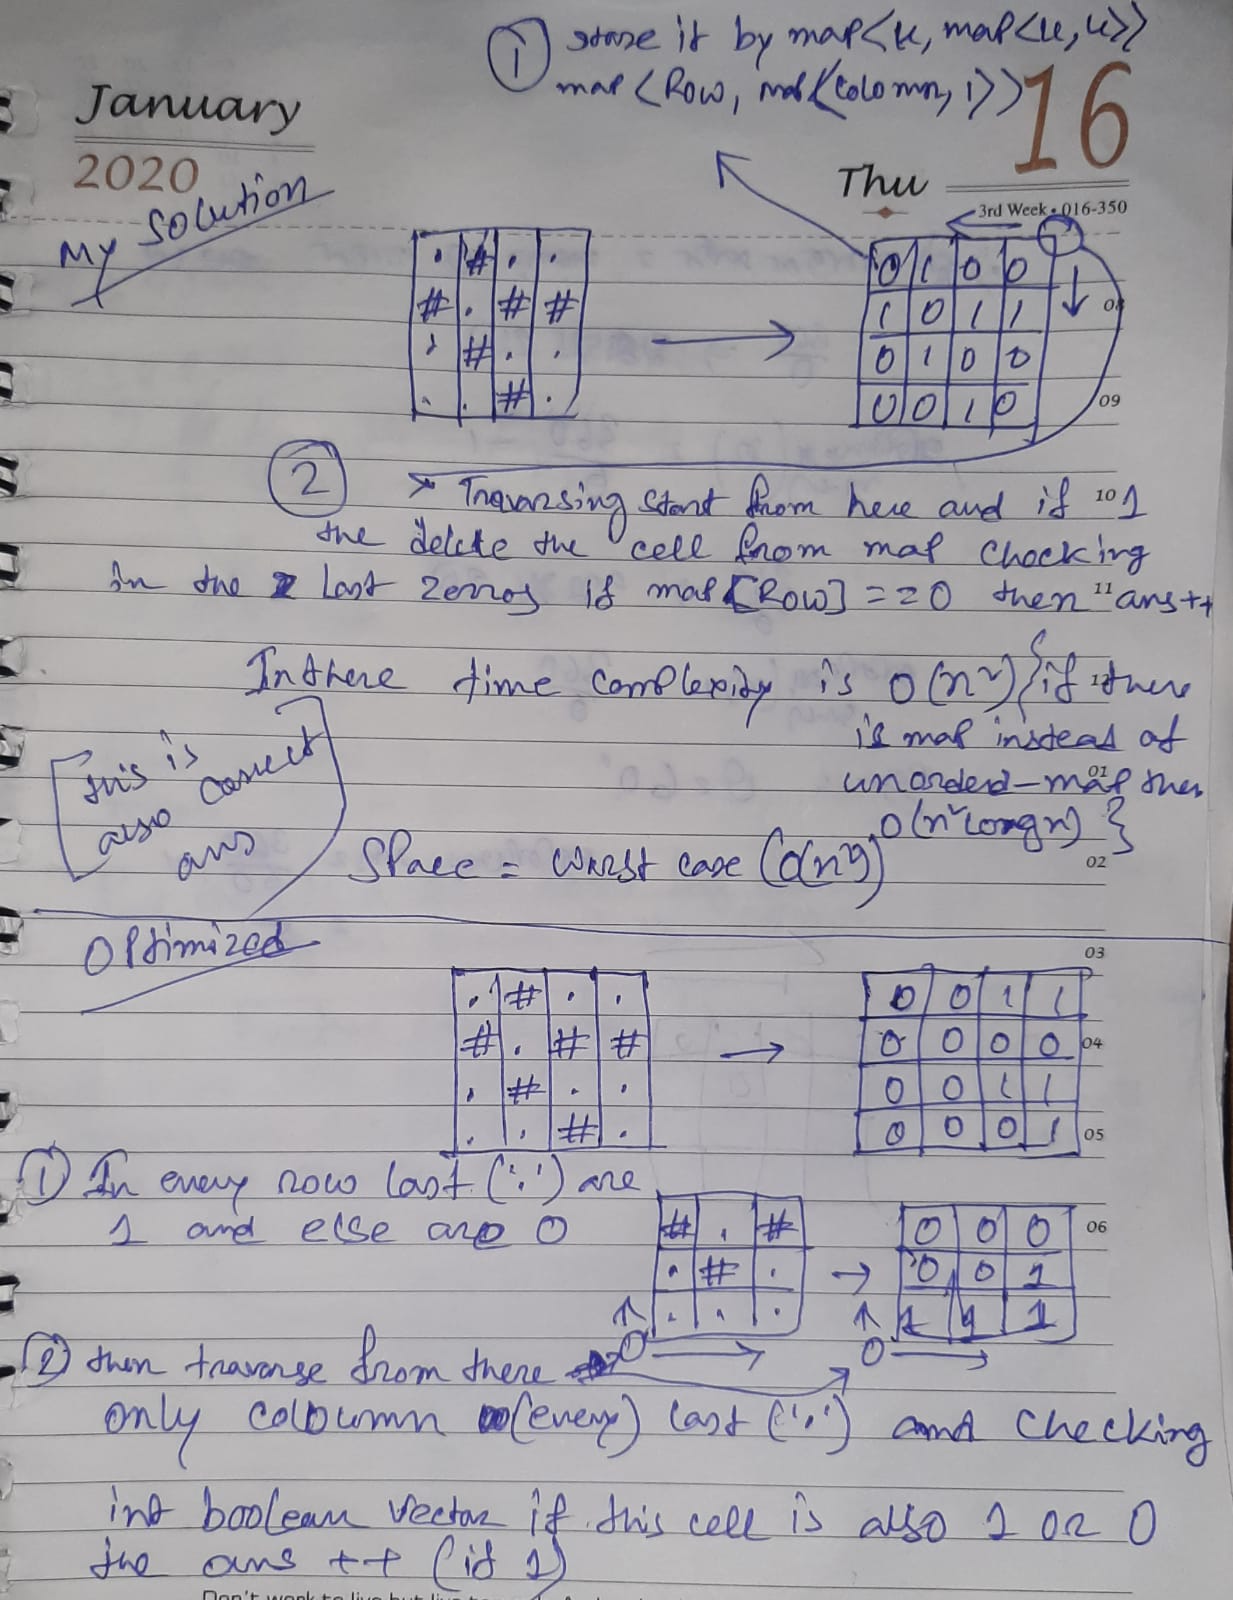 ① store it by map<u, map<u,u>>
map <Row, map<Colomn, 1>>
January
2020
16
Thu
3rd Week • 016-350
My Solution
. # . .
# . # #
. # . .
. . # .
0 1 0 0
1 0 1 1
0 1 0 0
0 0 1 0
09
②
Traversing start from here and if 10 1
the delete the cell from map checking
in the last zerros if map[Row]==0 then 11 ans++
In there time complexity is O(n²) {if there
is map instead of
unorderd-map then
O(n²longn) }
01
[this is
also correct
ans]
Space = worst case (O(n²))
02
Optimized
03
. # . .
# . # #
. # . .
. . # .
0 0 1 1
0 0 0 0
0 0 1 1
0 0 0 1
04
05
① In every row last ('.') are
1 and else are 0
# . #
. # .
. . .
0 0 0
0 0 1
1 1 1
06
② then traverse from there
only coloumn (every) last ('.') and checking
int boolean vector if this cell is also 1 or 0
the ans ++ (if 1)